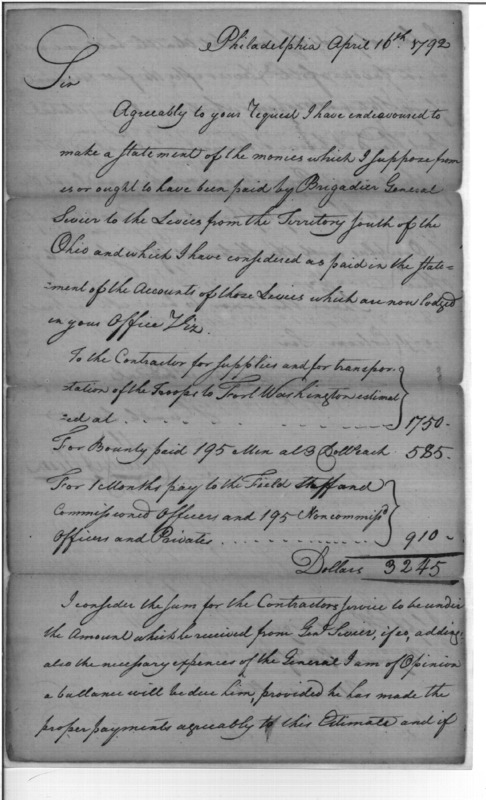 Philadelphia April 16th 1792
Sir
Agreeably to your request I have endeavoured to
make a Statement of the monies which I suppose from
is or ought to have been paid by Brigadier General
Sevier to the Levies from the Territory South of the
Ohio and which I have considered as paid in the state=
=ment of the Accounts of those Levies which are now lodged
in your Office Viz.
To the Contractor for Supplies and for transpor-
=tation of the Troops to Fort Washington estimat
=ed at . . . . . . . . 1750.
For Bounty paid 195 Men at 3 Doll. each 585.
For 1 Months pay to the Field Staff and
Commissioned Officers and 195 Noncommissd
Officers and Privates . . . . . . . . 910 -
Dollars 3245
I consider the sum for the Contractors service to be under
the Amount which he received from Genl. Sevier, if so, adding
also the necessary expences of the General I am of Opinion
a ballance will be due him, provided he has made the
proper payments agreeably to this Estimate and if